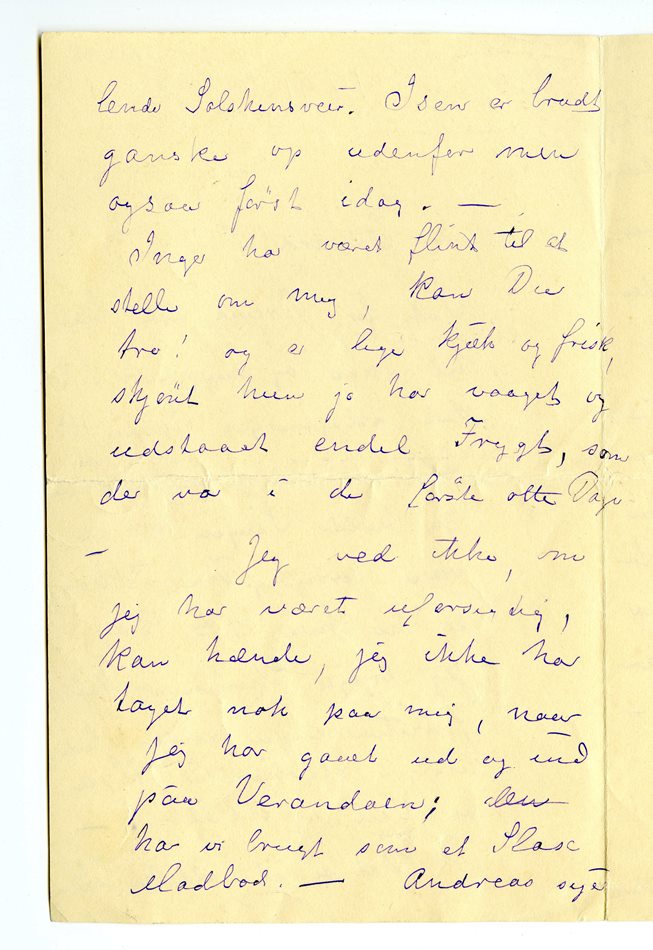 lende Solskinsveir. Isen er brudt
ganske op udenfor men
ogsaa først idag. —
Inge har været flink til at
stelle om mig, kan Du
tro! og er lige kjæk og frisk,
skjönt hun jo har vaaget og
udstaaet endel Frygt, som
der var i de første otte Dage
— Jeg ved ikke, om
jeg har været uforsigtig,
kan hænde, jeg ikke har
taget nok paa mig, naar
jeg har gaaet ud og ind
paa Verandaen; den
har vi brugt som et Slags
Madbod. — Andreas